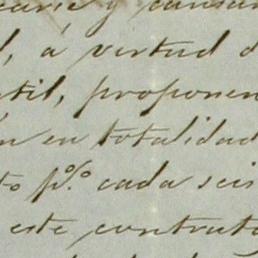 y
l, á virtud d
til, proponen
n en totalidad
to p% cada seis
este contrato